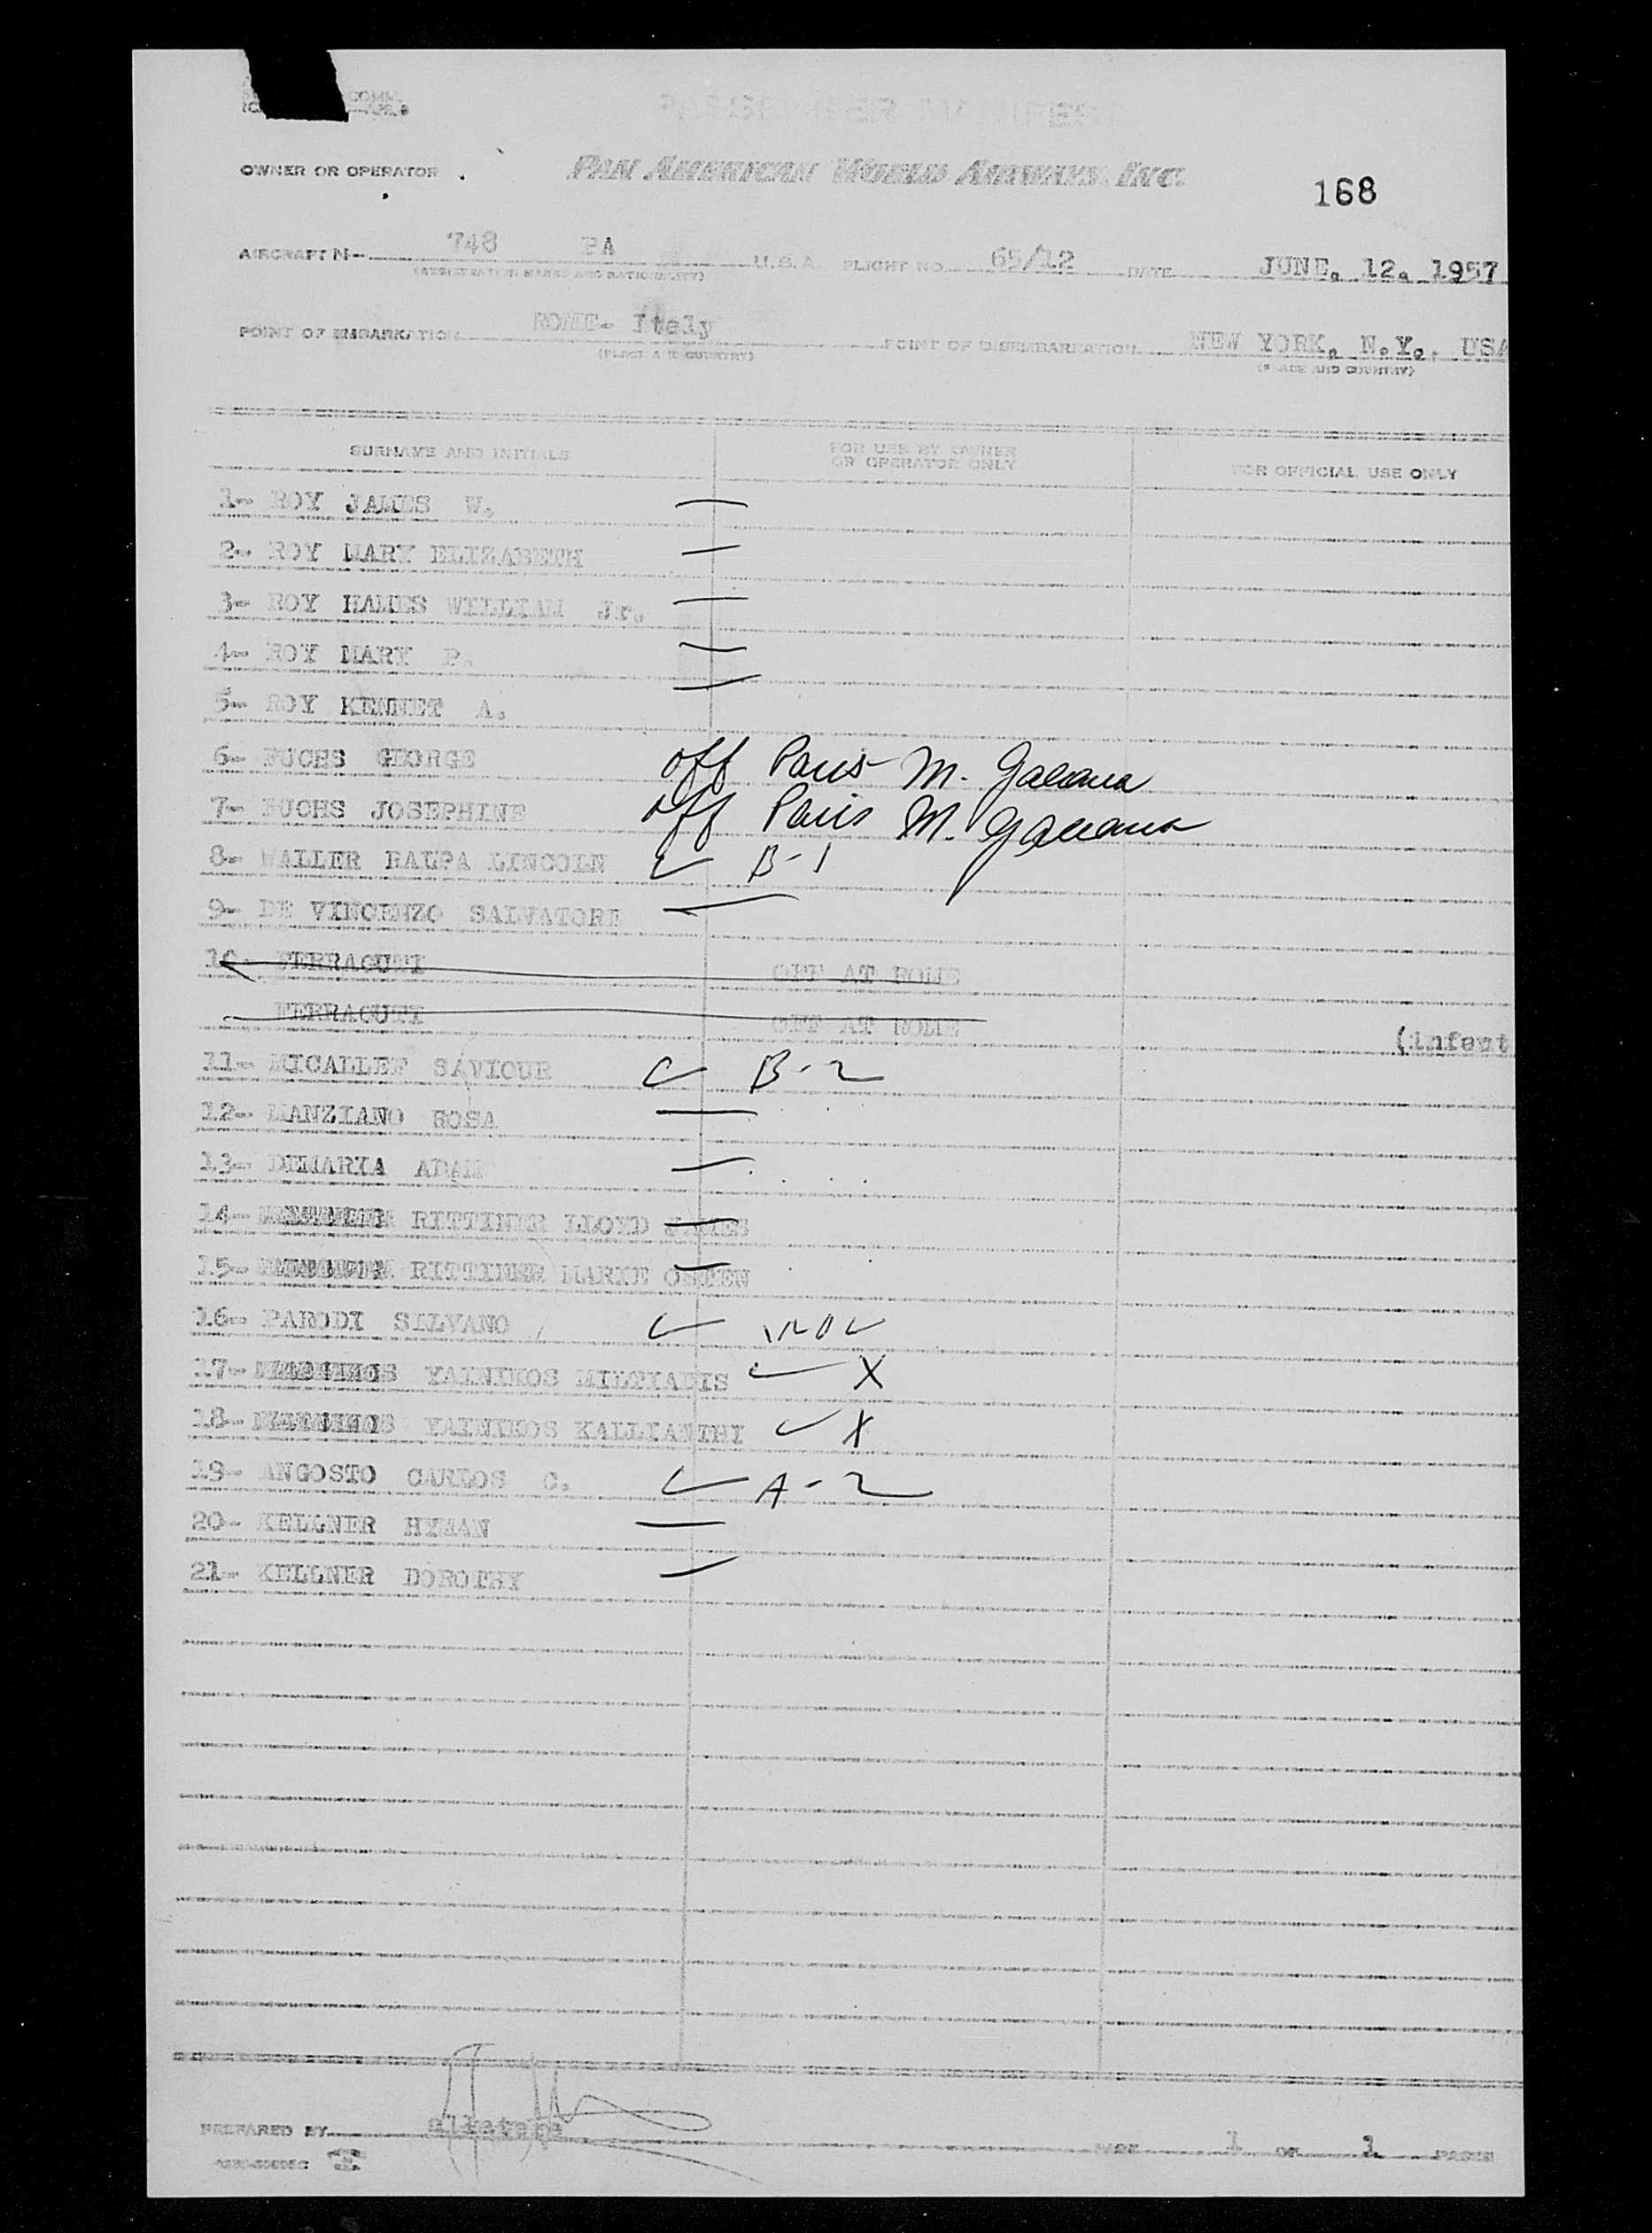 COMM.
OWNER OR OPERATOR
PAN AMERICAN WORLD AIRWAYS, INC.
168
AIRCRAFT N- 748 PA U.S.A. FLIGHT NO. 65/12 DATE JUNE. 12. 1957
(REGISTRATION MARKS AND NATIONALITY)
POINT OF EMBARKATION ROME- Italy POINT OF DISEMBARKATION NEW YORK. N.Y.. USA
(PLACE AND COUNTRY) (PLACE AND COUNTRY)
SURNAME AND INITIALS FOR USE BY OWNER OR OPERATOR ONLY FOR OFFICIAL USE ONLY
1- ROY JAMES W.
2- ROY MARY ELIZABETH
3- ROY HAMES WILLIAM Jr.
4- ROY MARY P.
5- ROY KENNET A.
6- FUCHS GEORGE off Paris M.
7- FUCHS JOSEPHINE off Paris M.
8- WALLER RALPA LINCOLN B-1
9- DE VINCENZO SALVATORE
10- FERRAGUTI OFF AT ROME
FERRAGUTI OFF AT ROME (infant
11- MICALLEF SAVIOUR B-2
12- MANZIANO ROSA
13- DEMARIA ADAM
14- RITTINER LLOYD JAMES
15- RITTINER MARIE OSTEN
16- PARODI SILVANO
17- YAINIKOS MILTIADIS X
18- YAINIKOS KALLIANTHY X
19- ANGOSTO CARLOS C. A-2
20- KELLNER HYMAN
21- KELLNER DOROTHY
PREPARED BY PAGE 1 OF 1 PAGES